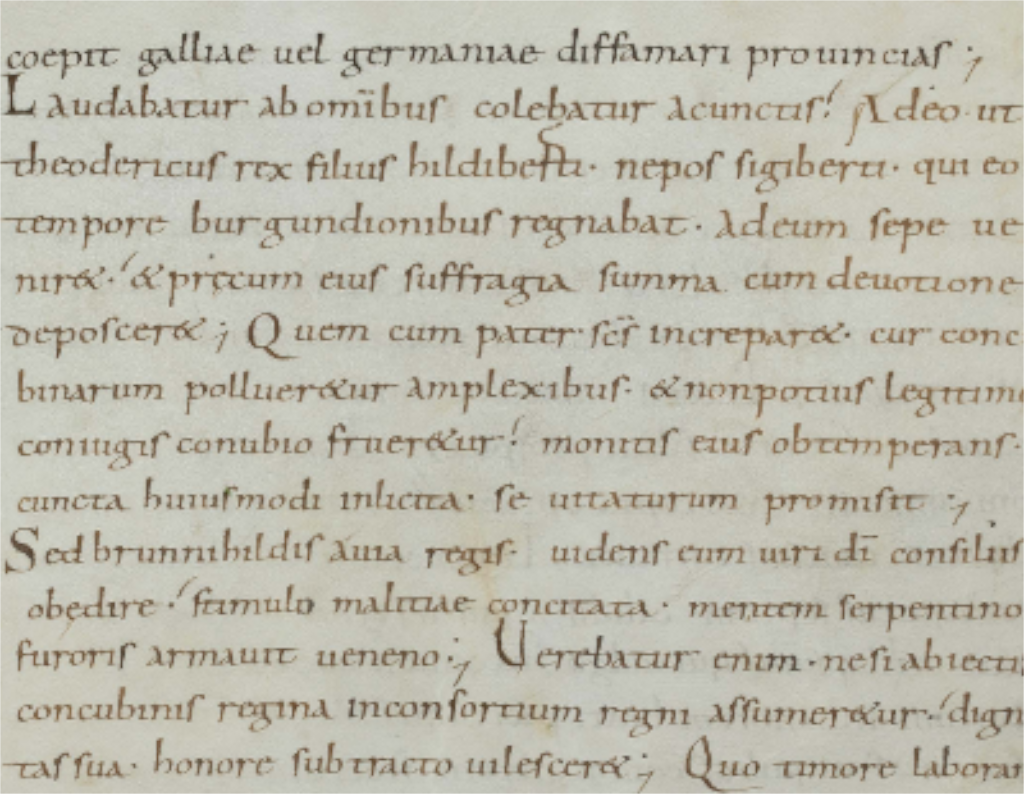 coepit galliae uel germaniae diffamari prouincias ;
Laudabatur ab om̅ibus colebatur acunctis. Adeo ut
theodericus rex filius hildiberti · nepos sigiberti · qui eo
tempore burgundionibus regnabat · Adeum sepe ue
nir& · & pręcum eius suffragia summa cum deuotione
deposcer& ; Quem cum pater sc̅s increpar& · cur conc
binarum polluer&ur amplexibus · & nonpotius legitim
coniugis conubio fruer&ur · monitis eius obtemperans ·
cuncta huiusmodi inlicita · se uitaturum promisit ;
Sed brunnihildis auia regis · uidens eum uiri di̅ consiliis
obędire · stimulo malitiae concitata · mentem serpentino
furoris armauit ueneno ; Uerebatur enim · ne si abiecti
concubinis regina inconsortium regni assumer&ur · dign
tas sua · honore subtracto uilescer& ; Quo timore laborar